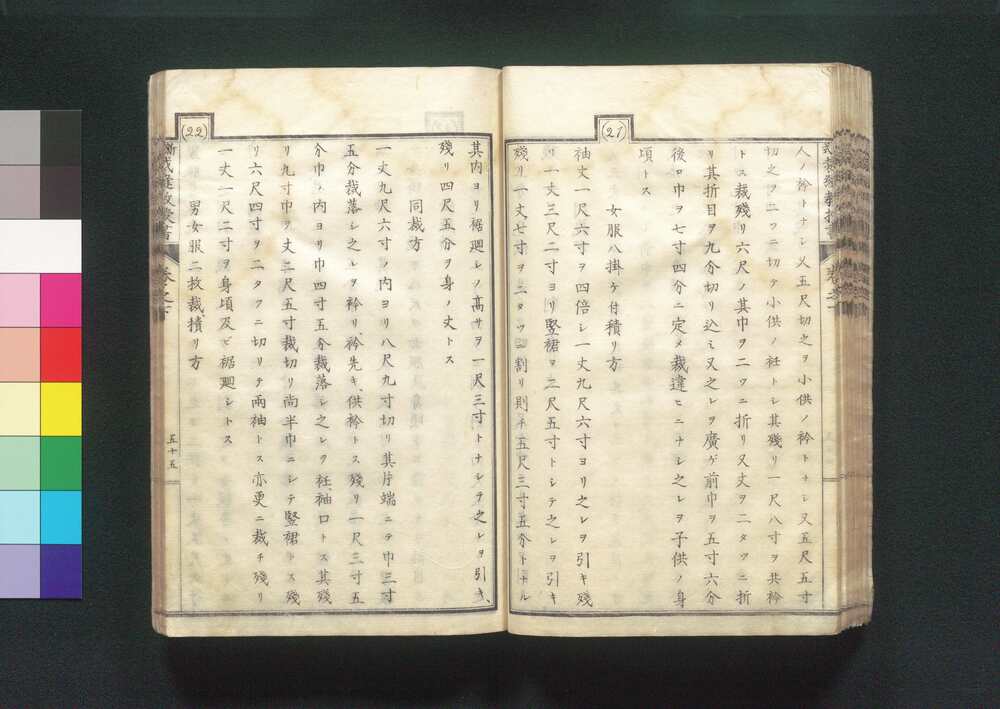 (21)
人ノ衿トナシ又五尺切之ヲ小供ノ衿トナシ又五尺五寸
切之ヲ二ツニ切テ小供ノ衽トシ其残リ一尺八寸ヲ共衿
トス裁残リ六尺ノ其巾ヲ二ツニ折リ又丈ヲ二タツニ折
リ其折目ヲ九分切リ込ミ又之レヲ廣ゲ前巾ヲ五寸六分
後ロ巾ヲ七寸四分ニ定メ裁違ヒニナシ之レヲ子供ノ身
頃トス
女服八掛ケ付積リ方
袖丈一尺六寸ヲ四倍シ一丈九尺六寸ヨリ之レヲ引キ残
リ一丈三尺二寸ヨリ竪裙ヲ二尺五寸トシテ之レヲ引キ
残リ一丈七寸ヲ二タツニ割リ則チ五尺三寸五分トナル
(22)
其内ヨリ裾廻シノ高サヲ一尺三寸トナシテ之レヲ引キ、
残リ四尺五分ヲ身ノ丈トス
同裁方
一丈九尺六寸ノ内ヨリ八尺九寸切リ其片端ニテ巾三寸
五分裁落シ之レヲ衿リ、衿先キ、供衿トス残リ一尺三寸五
分巾ノ内ヨリ巾四寸五分裁落シ之レヲ衽、袖口トス其残
リ九寸巾ヲ丈二尺五寸裁切リ尚半巾ニシテ竪裙トス残
リ六尺四寸ヲ二タツニ切リテ両袖トス亦更ニ裁チ残リ
一丈一尺二寸ヲ身頃及ビ裾廻シトス
男女服二枚裁積リ方
巻之下
五十五